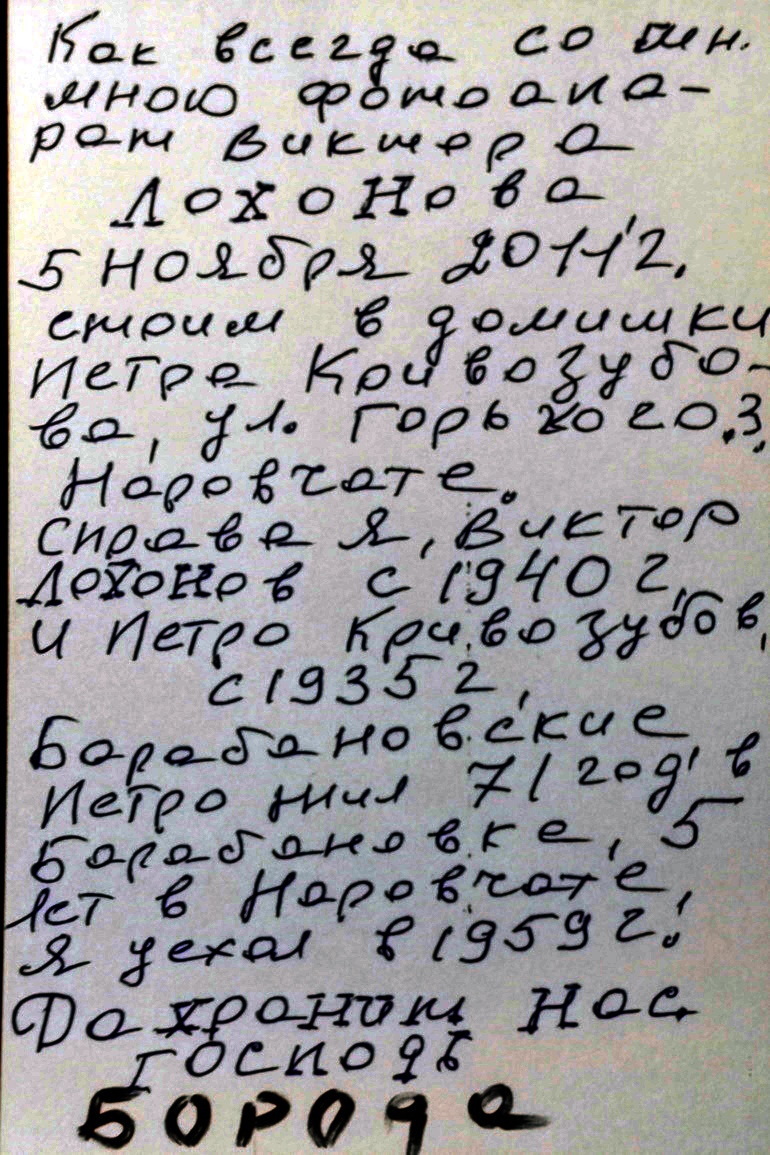 Как всегда со мн.
мною фотоапа-
рат Виктора
Лохонова
5 ноября 2011г.
стоим в домишки
Петра Кривозубо-
ва, ул. Горького.3.
Наровчате.
Справа я, Виктор
Лохонов с 1940 г.
и Петро Кривозубов,
с 1935 г,
Барабановские
Петро жил 71 год, в
Барабановке, 5
лет в Наровчате,
я уехал в 1959 г.!
Да хранит нас
Господь
Борода